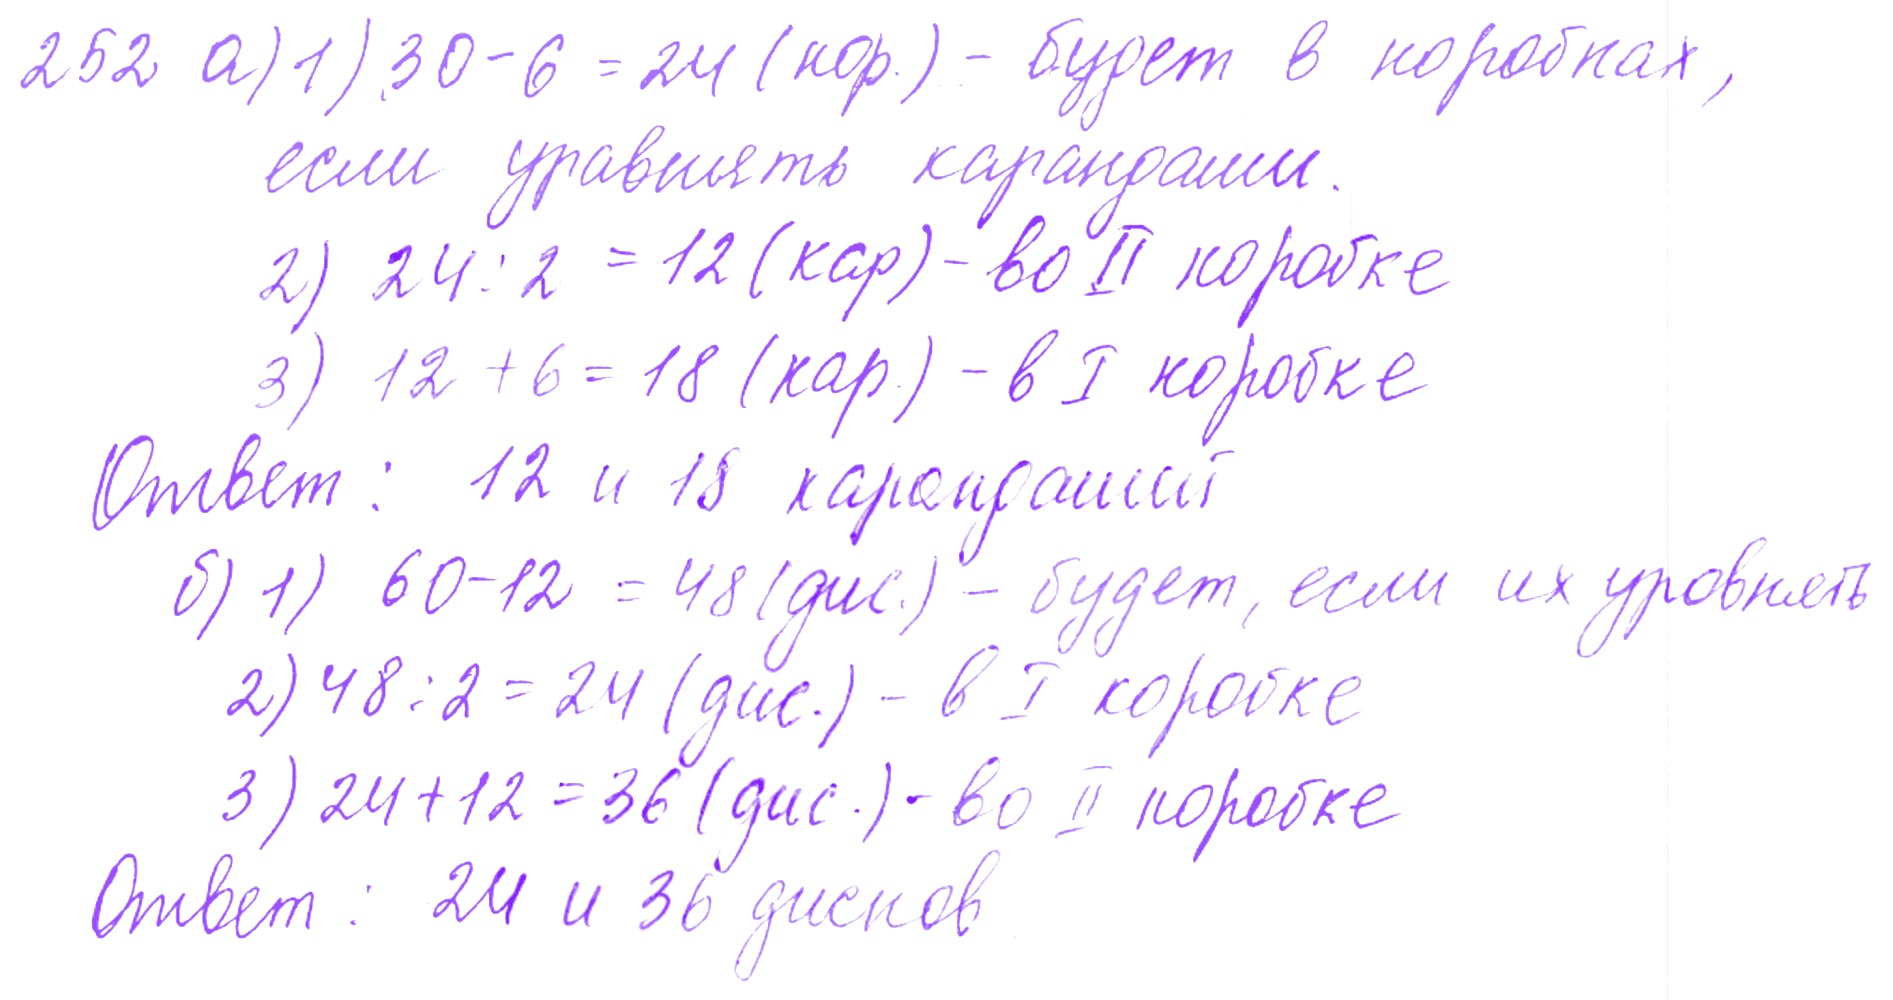 252 а) 1) 30 - 6 = 24 (кор.) - будет в коробках,
если уравнять карандаши.
2) 24 : 2 = 12 (кар) - во II коробке
3) 12 + 6 = 18 (кар.) - в I коробке
Ответ: 12 и 18 карандашей
б) 1) 60 - 12 = 48 (дис.) - будет, если их уровнять
2) 48 : 2 = 24 (дис.) - в I коробке
3) 24 + 12 = 36 (дис.) - во II коробке
Ответ: 24 и 36 дисков